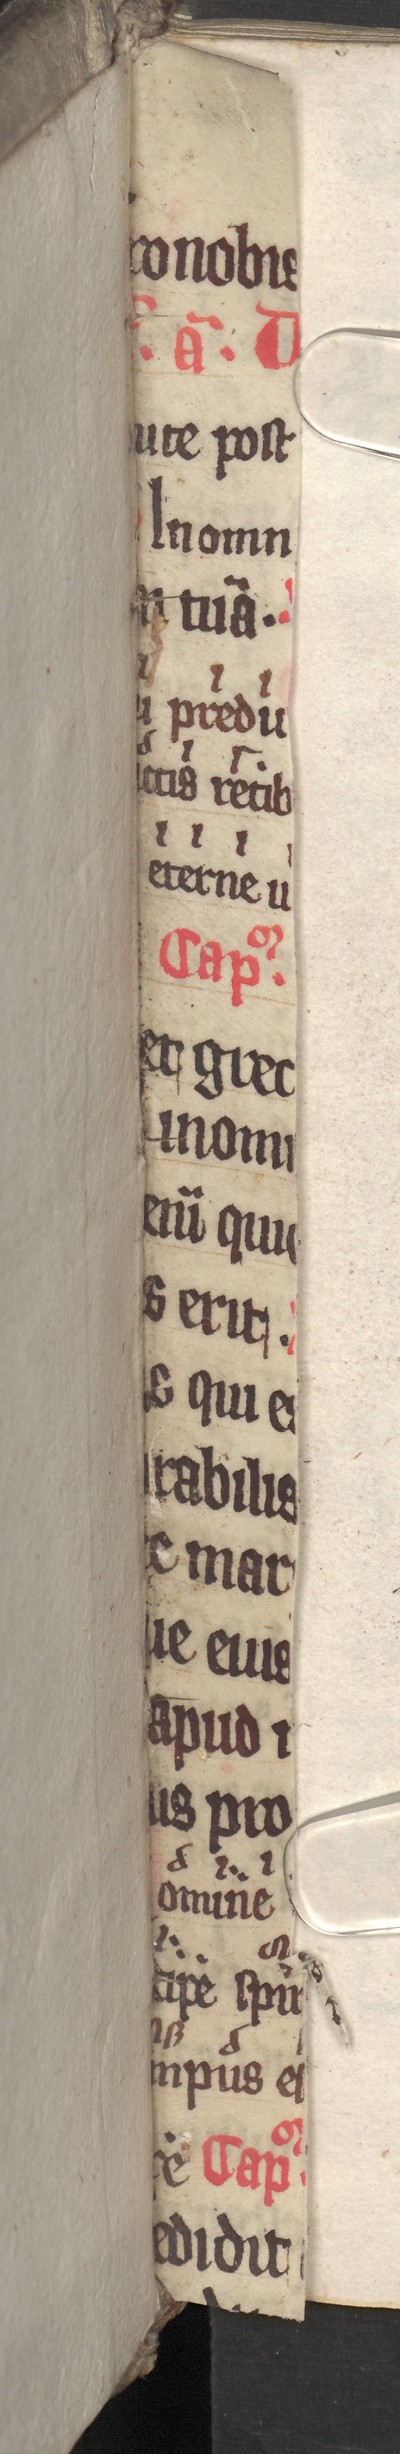 ronobis
ã. D
ute post
In omn
m tuã.
u predu
ictis retib
eterne u
Cap
et grec
in omi
eiũ quic
s erit.
s qui es
rabilis
c mar
ue eius
apud i
us pro
omine
cipe spũ
mpus ei
Cap
edidit